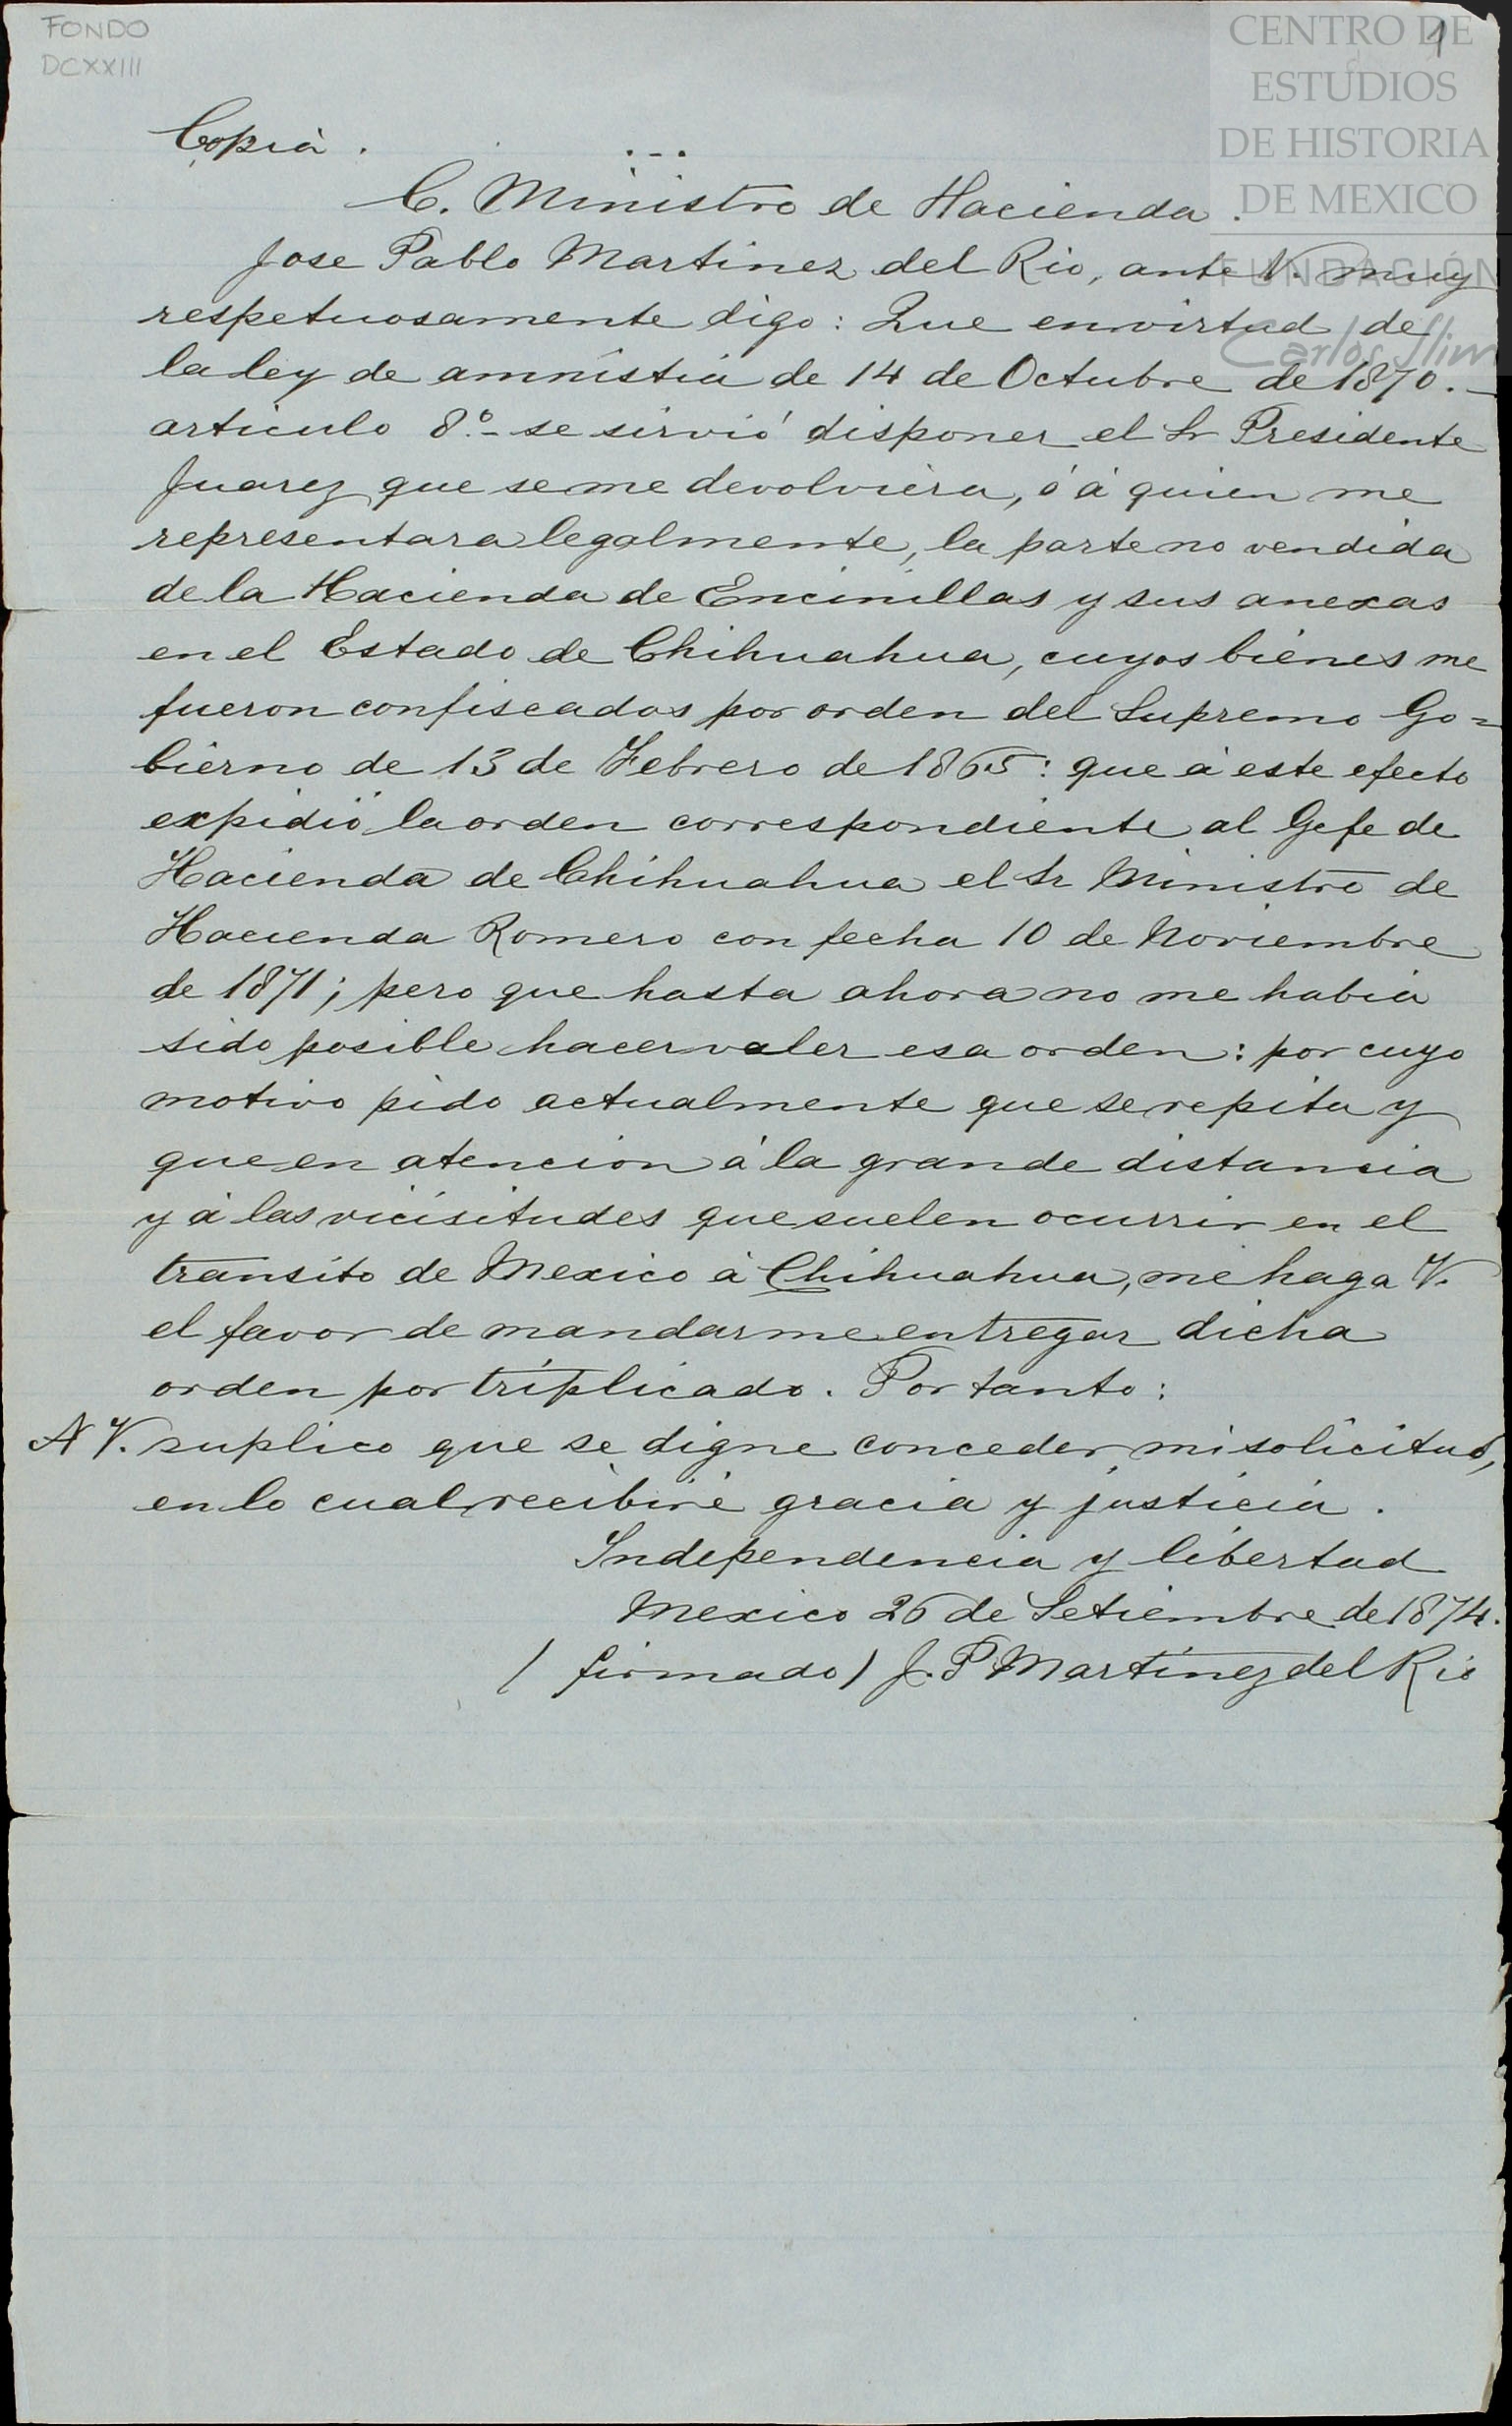 FONDO
DCXXIII
1
CENTRO DE
ESTUDIOS
DE HISTORIA
DE MEXICO
FUNDACIÓN
Carlos Slim
Copia.
C. Ministro de Hacienda.
Jose Pablo Martinez del Rio, ante V. muy
respetuosamente digo: Que en virtud de
la ley de amnistia de 14 de Octubre de 1870.—
articulo 8º- se sirvió disponer el Sr Presidente
Juarez que se me devolviera, ó á quien me
representara legalmente, la parte no vendida
de la Hacienda de Encinillas y sus anexas
en el Estado de Chihuahua, cuyos bienes me
fueron confiscados por orden del Supremo Go=
bierno de 13 de Febrero de 1865: que á este efecto
expidió la orden correspondiente al Gefe de
Hacienda de Chihuahua el Sr Ministro de
Hacienda Romero con fecha 10 de Noviembre
de 1871; pero que hasta ahora no me habia
sido posible hacer valer esa orden: por cuyo
motivo pido actualmente que se repita y
que en atencion á la grande distancia
y á las vicisitudes que suelen ocurrir en el
transito de Mexico á Chihuahua, me haga V.
el favor de mandarme entregar dicha
orden por triplicado. Por tanto:
A V. suplico que se digne conceder mi solicitud,
en lo cual recibiré gracia y justicia.
Independencia y libertad
Mexico 26 de Setiembre de 1874.
(firmado) J. P Martinez del Rio